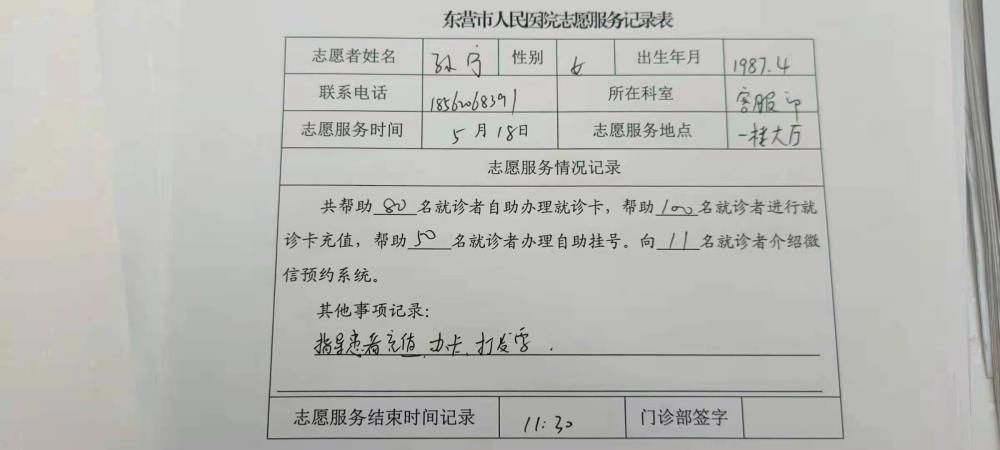 东营市人民医院志愿服务记录表
志愿者姓名 孙宁 性别 女 出生年月 1987.4
联系电话 18562068391 所在科室 客服部
志愿服务时间 5月18日 志愿服务地点 一楼大厅
志愿服务情况记录
共帮助80名就诊者自助办理就诊卡，帮助100名就诊者进行就
诊卡充值，帮助50名就诊者办理自助挂号。向11名就诊者介绍微
信预约系统。
其他事项记录：
指导患者充值、办卡、打发票.
志愿服务结束时间记录 11:30 门诊部签字